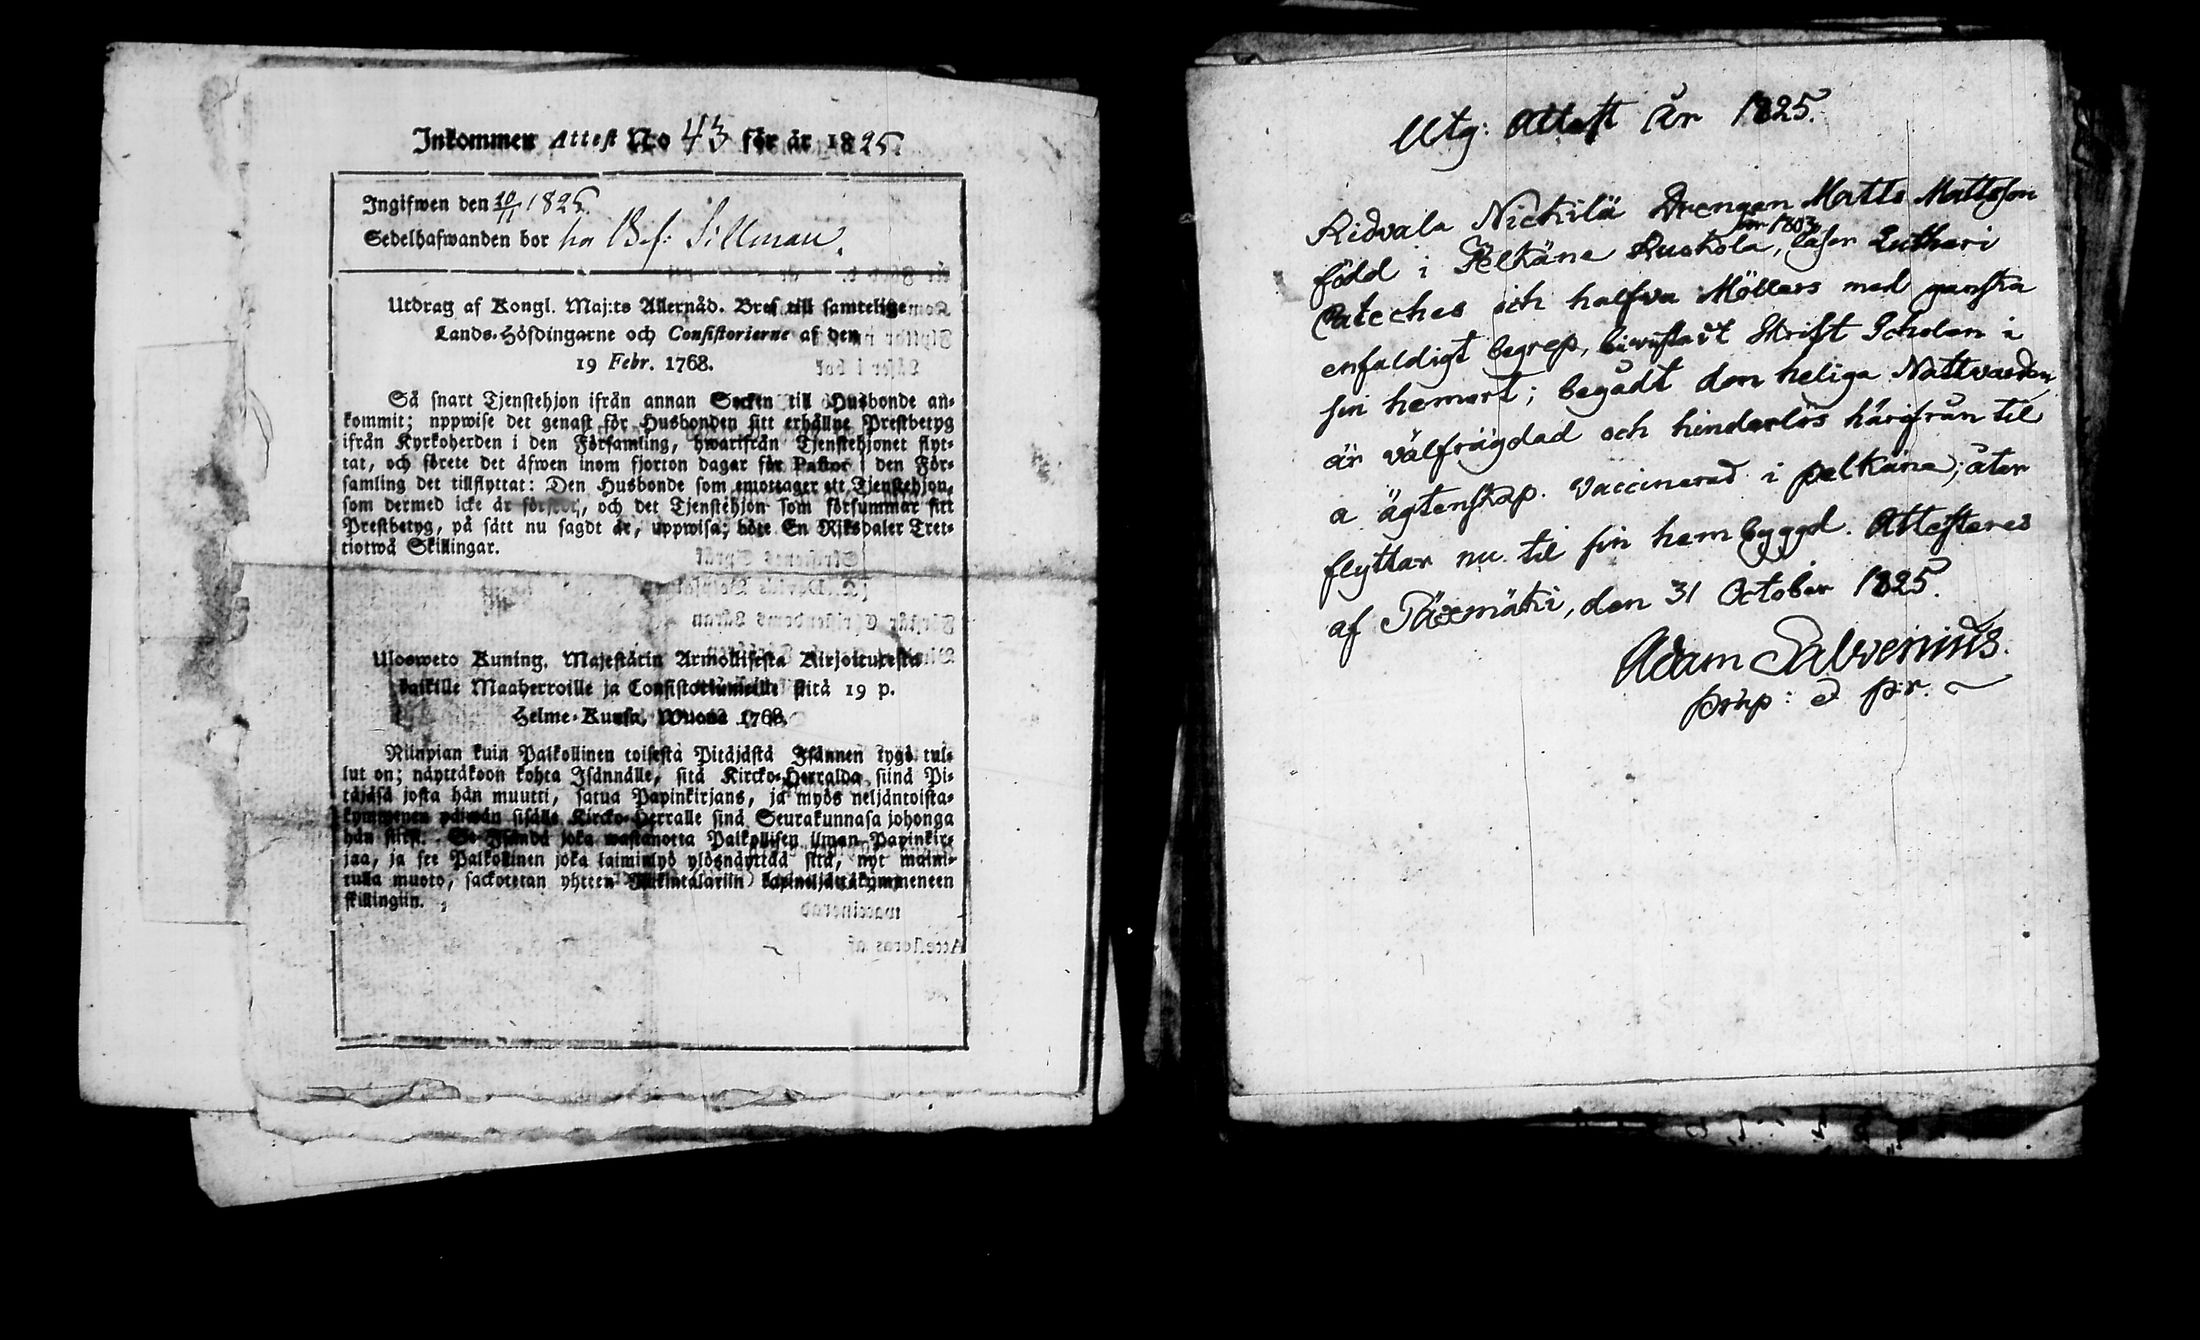 Inkommen Attest No 43 för år 1825.
Ingifwen den 10/11 1825.
Sedelhafwanden bor hos Bef: Sillman.
Utdrag af Kongl. Maj:ts Allernåd. Bref till samtelige
Lands-Höfdingarne och Consistorierne af den
19 Febr. 1768.
Så snart Tjenstehjon ifrån annan Socken till Husbonde an-
kommit; uppwise det genast för Husbonden sitt erhållne Prestbetyg
ifrån Kyrkoherden i den Församling, hwarifrån Tjenstehjonet flyt-
tat, och förete det äfwen inom fjorton dagar för Pastor i den För-
samling det tillflyttat: Den Husbonde som emottager ett Tjenstehjon,
som dermed icke är försedt, och det Tjenstehjon som försummar sitt
Prestbetyg, på sätt nu sagdt är, uppwisa; böte En Riksdaler Tret-
tiotwå Skillingar.
Ulosweto Kuning. Majestätin Armollisesta Kirjoituxesta
kaikille Maaherroille ja Consistoriumeille siitä 19 p.
Helme-Kuusa, Wuona 1768.
Niinpian kuin Palkollinen toisesta Pitäjästä Isännen tygö tul-
lut on; näyttäköön kohta Isännälle, sitä Kircko-Herralda siinä Pi-
täjäsä josta hän muutti, saatua Papinkirjans, ja myös neljäntoista-
kymmenen päiwän sisälle Kircko-Herralle siinä Seurakunnasa johonga
hän siirsi. Se Isändä joka wastanotta Palkollisen ilman Papinkir-
jaa, ja see Palkollinen joka laiminlyö ylösnäyttää sitä, nyt maini-
tulla muoto, sackotetan yhteen Riikintalariin kaxineljättäkymmeneen
skillingiin.
Utg: Attest År 1825.
Ridvala Nickilä Drengen Matts Mattsson
född i Pelkäne Ruokola, år 1803, läser Lutheri
Cateches och halfva Möllers med ganska
enfaldigt begrep, biwistadt Skrift Scholan i
sin hemort; begådt den heliga Nattvarden
är välfrägdad och hinderlös härifrån til
a ägtenskap. Vaccinerad i pelkäne; åter
flyttar nu til sin hembyggd. Attesteres
af Sääxmäki, den 31 October 1825.
Adam Salvenius.